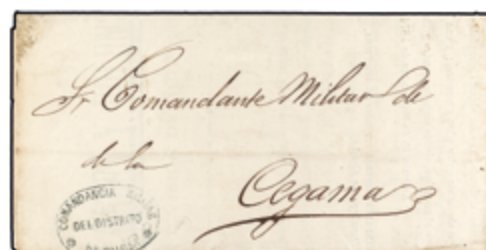 Sr Comandante Militar de
de la
Cegama
COMANDANCIA MILITAR
DEL DISTRITO